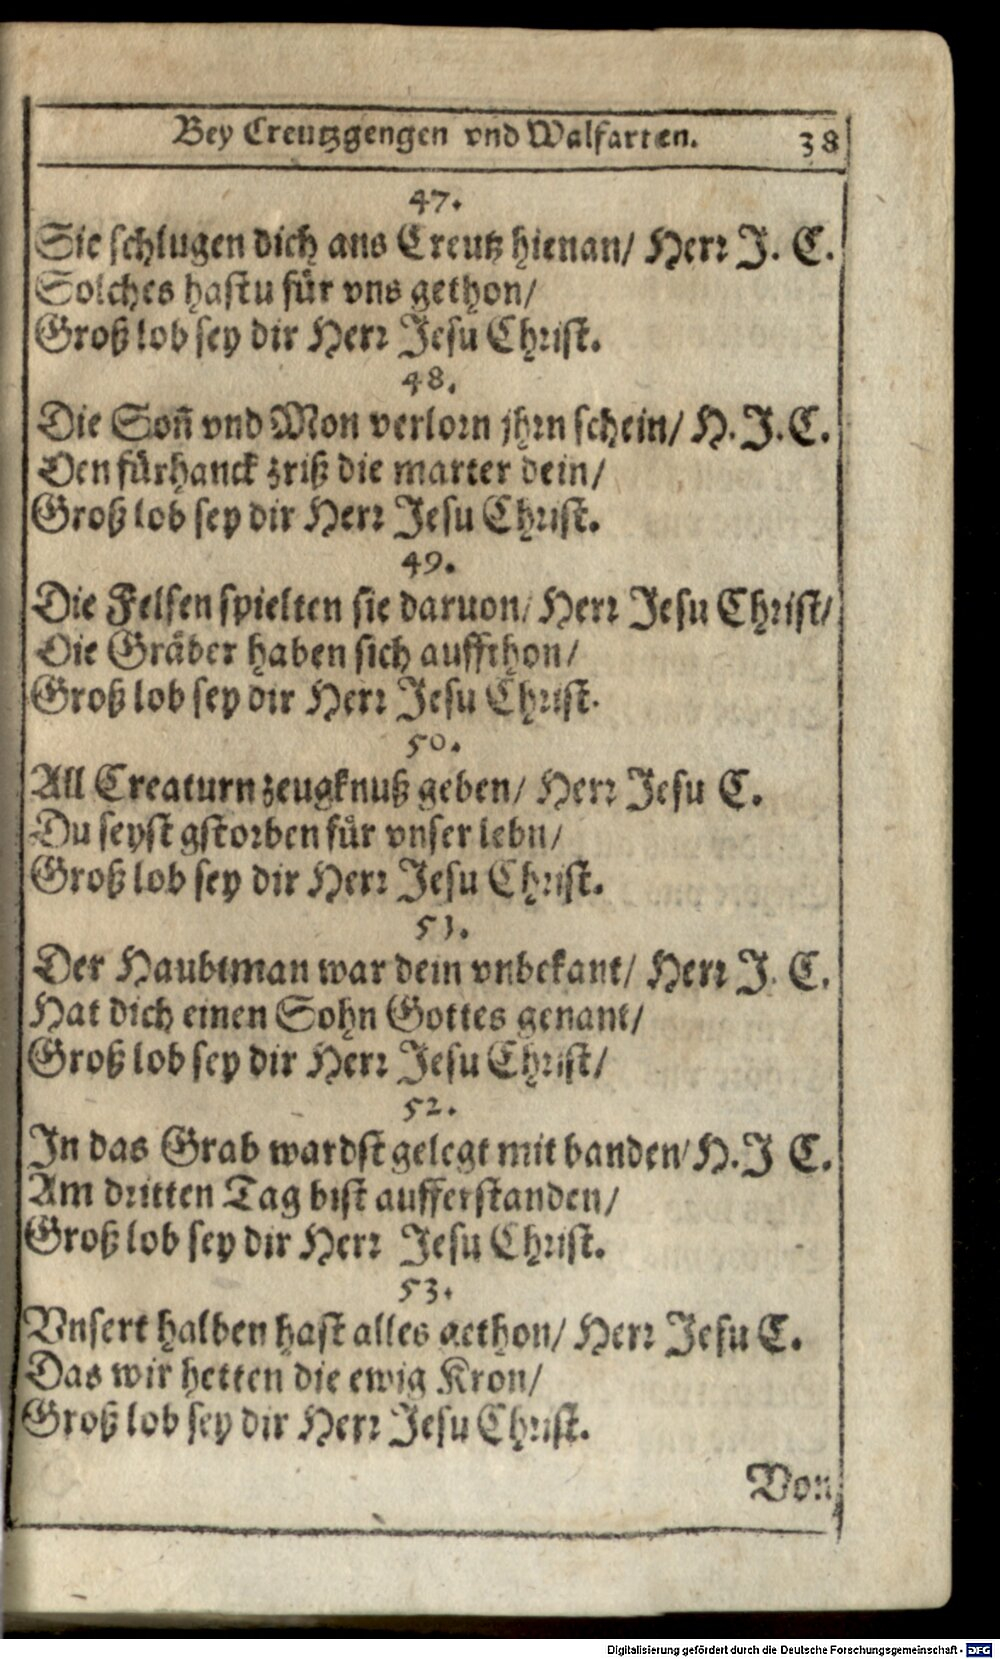 Bey Creutzgengen vnd Walfarten. 38
47.
Sie schlugen dich ans Creutz hienan/ Herr J. C.
Solches hastu für vns gethon/
Groß lob sey dir Herr Jesu Christ.
48.
Die Soñ vnd Mon verlorn jhrn schein/ H. J. C.
Den fürhanck zriß die marter dein/
Groß lob sey dir Herr Jesu Christ.
49.
Die Felsen spielten sie daruon/ Herr Jesu Christ/
Die Gräber haben sich auffthon/
Groß lob sey dir Herr Jesu Christ.
50.
All Creaturn zeugknuß geben/ Herr Jesu C.
Du seyst gstorben für vnser lebn/
Groß lob sey dir Herr Jesu Christ.
51.
Der Haubtman war dein vnbekant/ Herr J. C.
Hat dich einen Sohn Gottes genant/
Groß lob sey dir Herr Jesu Christ/
52.
In das Grab wardst gelegt mit banden/ H. J C.
Am dritten Tag bist aufferstanden/
Groß lob sey dir Herr Jesu Christ.
53.
Vnsert halben hast alles gethon/ Herr Jesu C.
Das wir hetten die ewig Kron/
Groß lob sey dir Herr Jesu Christ.
Von
Digitalisierung gefördert durch die Deutsche Forschungsgemeinschaft - DFG